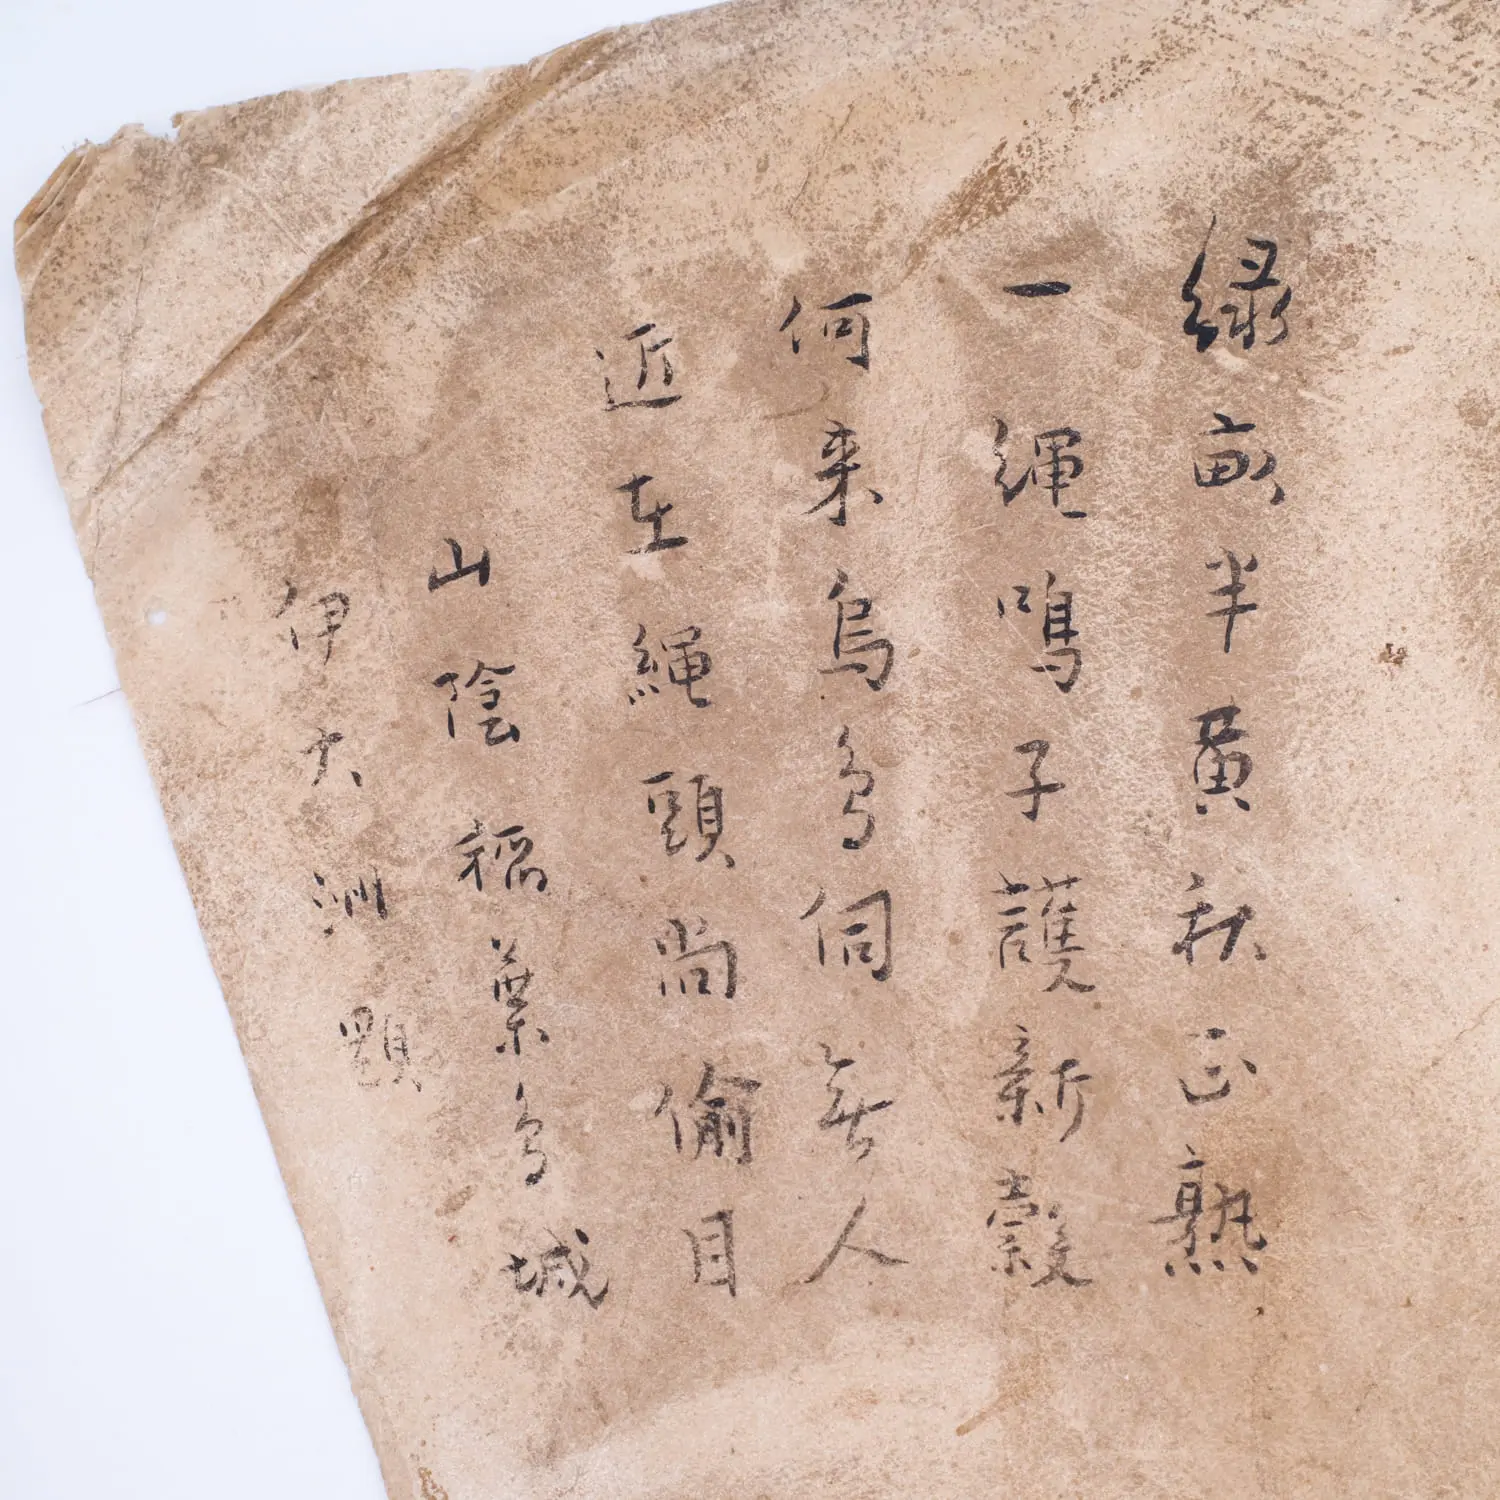 緑畝半黄秋正熟
一縄鳴子護新穀
何来烏鳥伺無人
近在縄頭尚偷目
山陰稲葉鳥城
伊大洲題